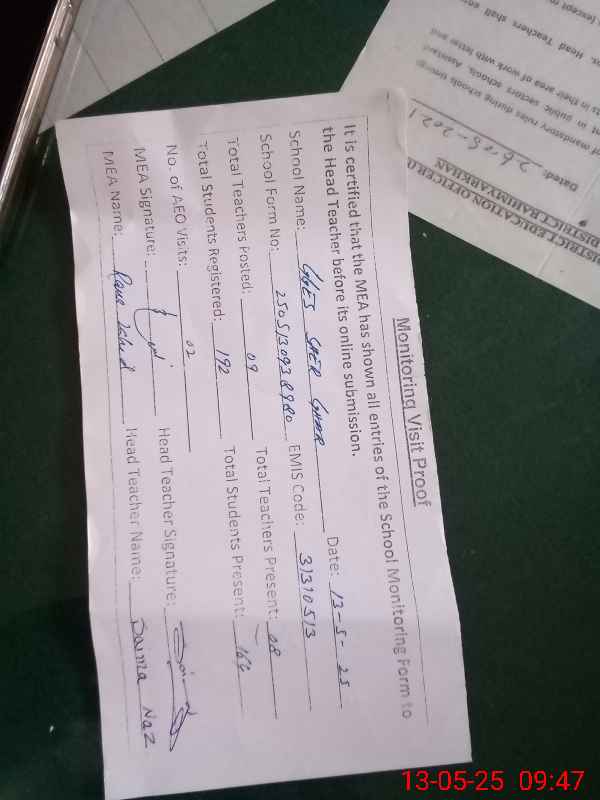 Monitoring Visit Proof
It is certified that the MEA has shown all entries of the School Monitoring Form to
the Head Teacher before its online submission.
School Name: Date: 13-5-25
School Form No: 2505130938980 EMIS Code: 31310513
Total Teachers Posted: 09 Total Teachers Present: 08
Total Students Registered: 192 Total Students Present: 164
No. of AEO Visits: 02
MEA Signature: Head Teacher Signature:
MEA Name: Head Teacher Name: Naz
DISTRICT EDUCATION OFFICER
DISTRICT RAHIMYARKHAN
Dated: 26-08-2021
of mandatory rules during schools timings
in public sectors schools, Assistant
in their area of work with letter and
Head Teachers shall
(except
13-05-25 09:47